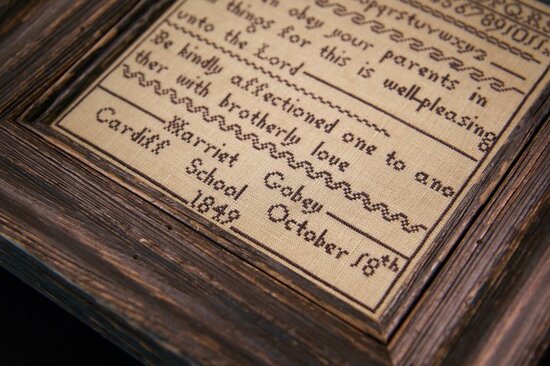 pqrstuvwxyz
n obey your parents in
things for this is well-pleasing
unto the Lord
Be kindly affectioned one to ano
ther with brotherly love
Harriet Gobey
Cardiff School October 18th
1849